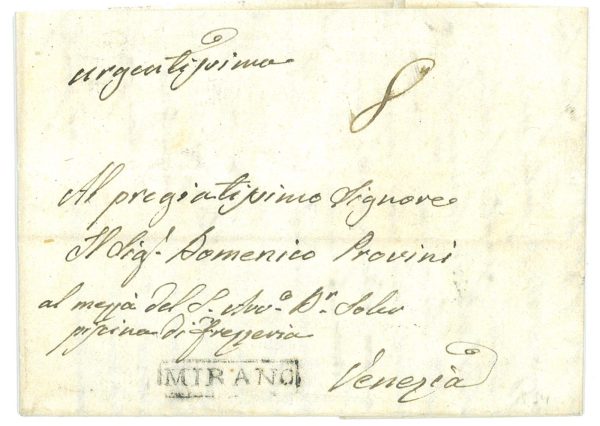 urgentissimo
8
Al pregiatissimo Signore
Il Sigr. Domenico Provini
al mezzà del S. Avo. Dr. Soler
piscina di Frezzeria
MIRANO
Venezia